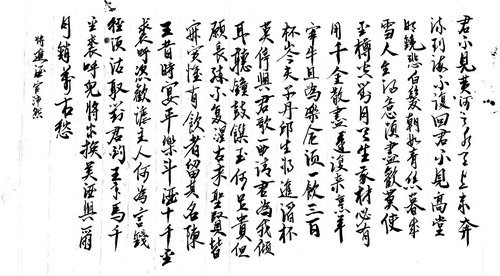 君不見黃河之水天上來奔
流到海不復回君不見高堂
明鏡悲白髮朝如青絲暮成
雪人生得意須盡歡莫使
金樽空對月天生我材必有
用千金散盡還復來烹羊
宰牛且為樂會須一飲三百
杯岑夫子丹邱生將進酒杯
莫停與君歌一曲請君為我傾
耳聽鐘鼓饌玉何足貴但
願長醉不復醒古來聖賢皆
寂寞惟有飲者留其名陳
王昔時宴平樂斗酒十千恣
歡謔主人何為言錢
徑須沽取對君酌五馬千
金裘呼兒將出換美酒與爾
同銷萬古愁
將進酒